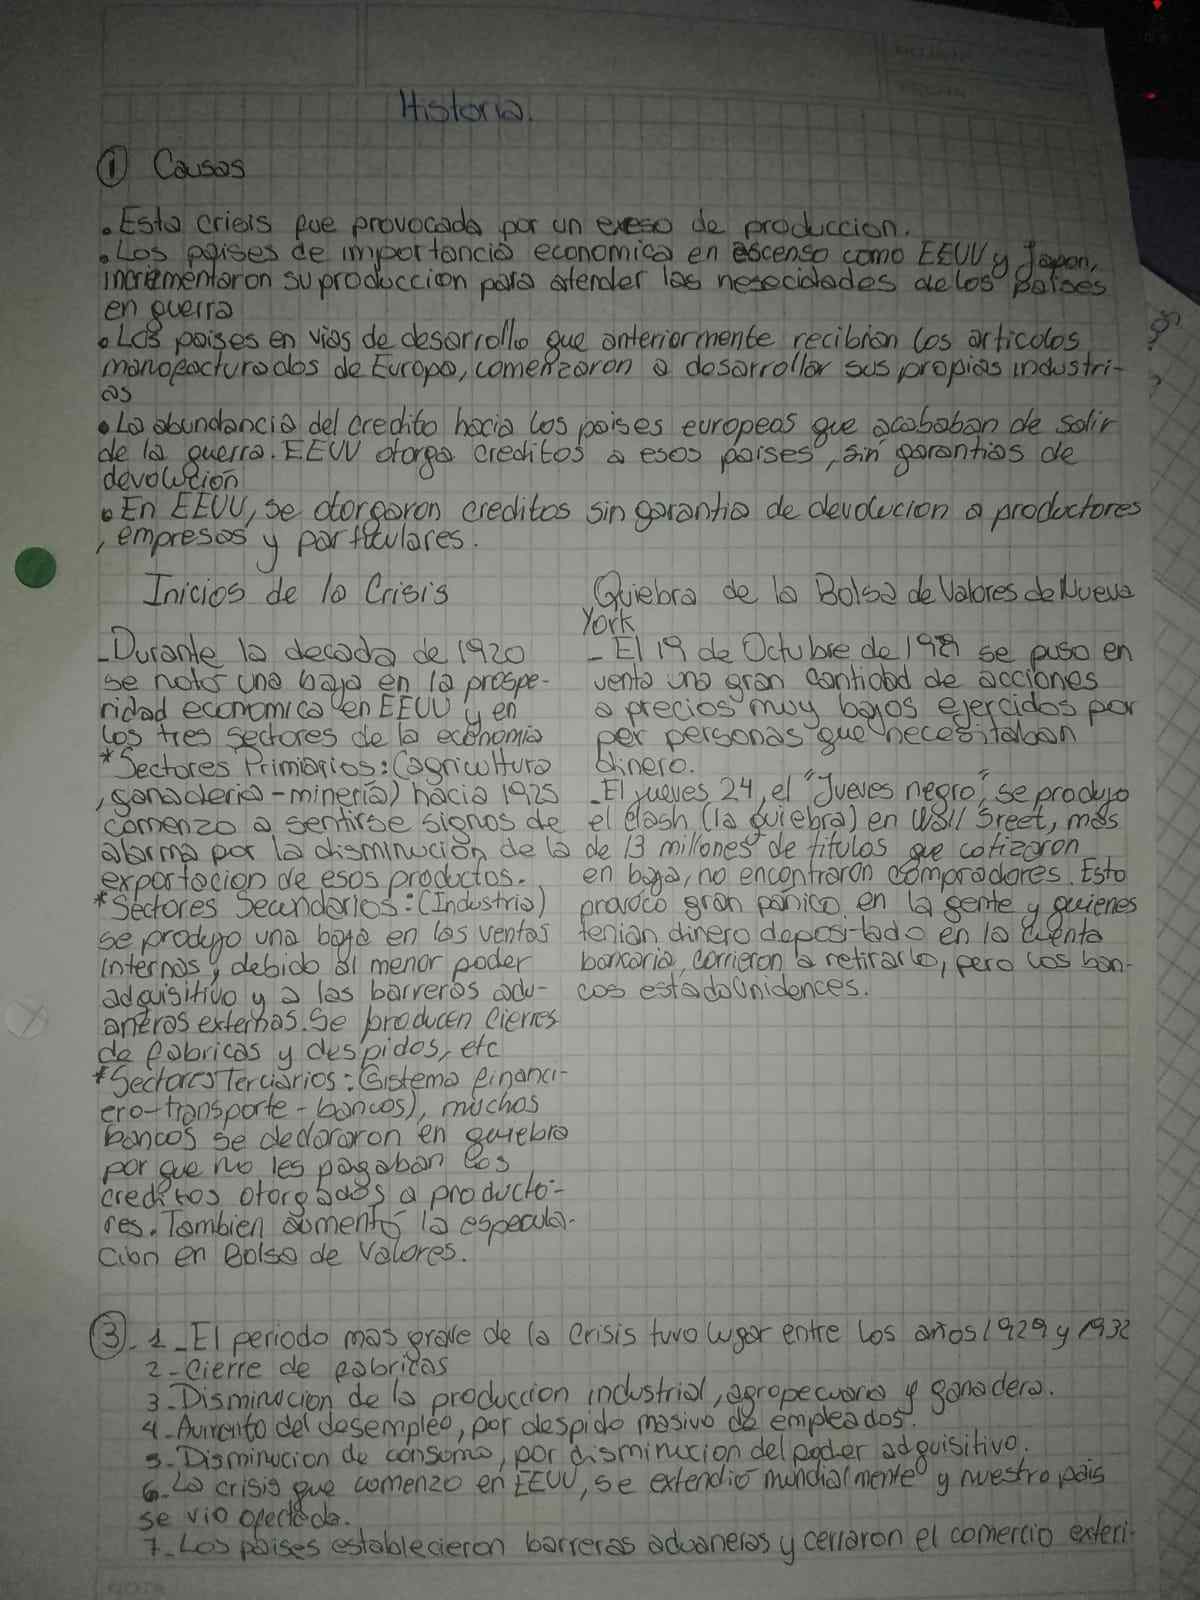 Historia.
① Causas
• Esta crisis fue provocada por un exeso de produccion.
• Los paises de importancia economica en escenso como EEUU y Japon,
incrementaron su produccion para atender las nesecidades de los paises
en guerra
• Los paises en vias de desarrollo que anteriormente recibian los articolos
manofacturados de Europa, comenzaron a desarrollar sus propias industri-
as
• La abundancia del credito hacia los paises europeos que acababan de salir
de la guerra. EEUU otorga creditos a esos paises, sin garantias de
devolución
• En EEUU, se otorgaron creditos sin garantia de devolucion a productores
, empresas y particulares.
Inicios de la Crisis
- Durante la decada de 1920
se notó una baja en la prospe-
ridad economica en EEUU y en
los tres sectores de la economia
* Sectores Primarios: (agricultura
, ganaderia - minería) hacia 1925
comenzo a sentirse signos de
alarma por la disminución de la
exportacion de esos productos.
* Sectores Secundarios: (Industria)
se produjo una baja en las ventas
internas, debido al menor poder
adquisitivo y a las barreras adu-
aneras externas. Se producen cierres
de fabricas y despidos, etc
* Sectores Terciarios: (Sistema financi-
ero - transporte - bancos), muchos
bancos se declararon en quiebra
por que no les pagaban los
creditos otorgados a producto-
res. Tambien aumentó la especula-
cion en Bolsa de Valores.
Quiebra de la Bolsa de Valores de Nueva
York
- El 19 de Octubre de 1929 se puso en
venta una gran cantidad de acciones
a precios muy bajos ejercidos por
per personas que necesitaban
dinero.
- El jueves 24, el "Jueves negro", se produjo
el clash (la quiebra) en Wall Sreet, mas
de 13 millones de titulos que cotizaron
en baja, no encontraron compradores. Esto
provoco gran pánico en la gente y quienes
tenian dinero depositado en la cuenta
bancaria, corrieron a retirarlo, pero los ban-
cos estadounidences.
③. 1_ El periodo mas grave de la crisis tuvo lugar entre los años 1929 y 1932
2- Cierre de fabricas
3- Disminucion de la produccion industrial, agropecuaria y ganadera.
4- Aumento del desempleo, por despido masivo de empleados.
5- Disminucion de consumo, por disminucion del poder adquisitivo.
6- La crisis que comenzo en EEUU, se extendió mundialmente y nuestro pais
se vio afectado.
7- Los paises establecieron barreras aduaneras y cerraron el comercio exteri-